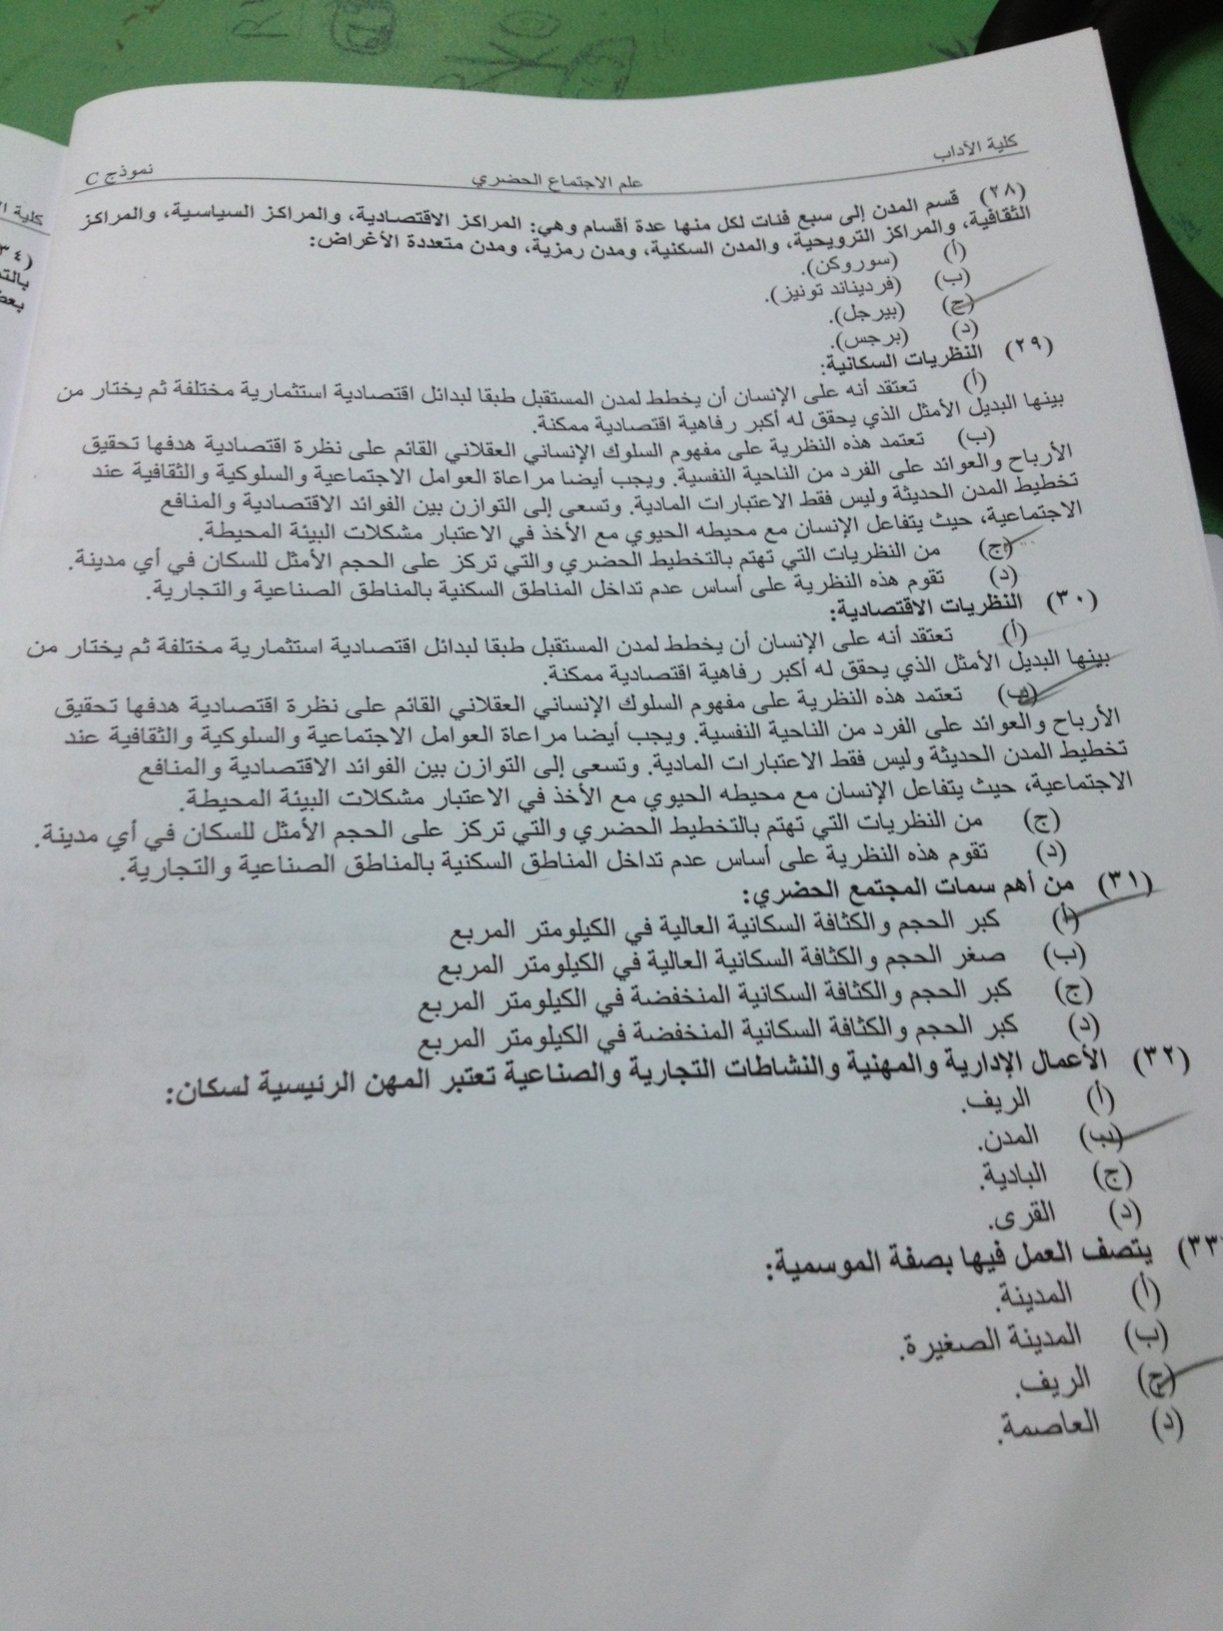 كلية الآداب
علم الاجتماع الحضري
نموذج C
(٢٨) قسم المدن إلى سبع فئات لكل منها عدة أقسام وهي: المراكز الاقتصادية، والمراكز السياسية، والمراكز
الثقافية، والمراكز الترويحية، والمدن السكنية، ومدن رمزية، ومدن متعددة الأغراض:
(أ) (سوروكن).
(ب) (فرديناند تونيز).
(ج) (بيرجل).
(د) (برجس).
(٢٩) النظريات السكانية:
(أ) تعتقد أنه على الإنسان أن يخطط لمدن المستقبل طبقا لبدائل اقتصادية استثمارية مختلفة ثم يختار من
بينها البديل الأمثل الذي يحقق له أكبر رفاهية اقتصادية ممكنة.
(ب) تعتمد هذه النظرية على مفهوم السلوك الإنساني العقلاني القائم على نظرة اقتصادية هدفها تحقيق
الأرباح والعوائد على الفرد من الناحية النفسية. ويجب أيضا مراعاة العوامل الاجتماعية والسلوكية والثقافية عند
تخطيط المدن الحديثة وليس فقط الاعتبارات المادية. وتسعى إلى التوازن بين الفوائد الاقتصادية والمنافع
الاجتماعية، حيث يتفاعل الإنسان مع محيطه الحيوي مع الأخذ في الاعتبار مشكلات البيئة المحيطة.
(ج) من النظريات التي تهتم بالتخطيط الحضري والتي تركز على الحجم الأمثل للسكان في أي مدينة.
(د) تقوم هذه النظرية على أساس عدم تداخل المناطق السكنية بالمناطق الصناعية والتجارية.
(٣٠) النظريات الاقتصادية:
(أ) تعتقد أنه على الإنسان أن يخطط لمدن المستقبل طبقا لبدائل اقتصادية استثمارية مختلفة ثم يختار من
بينها البديل الأمثل الذي يحقق له أكبر رفاهية اقتصادية ممكنة.
(ب) تعتمد هذه النظرية على مفهوم السلوك الإنساني العقلاني القائم على نظرة اقتصادية هدفها تحقيق
الأرباح والعوائد على الفرد من الناحية النفسية. ويجب أيضا مراعاة العوامل الاجتماعية والسلوكية والثقافية عند
تخطيط المدن الحديثة وليس فقط الاعتبارات المادية. وتسعى إلى التوازن بين الفوائد الاقتصادية والمنافع
الاجتماعية، حيث يتفاعل الإنسان مع محيطه الحيوي مع الأخذ في الاعتبار مشكلات البيئة المحيطة.
(ج) من النظريات التي تهتم بالتخطيط الحضري والتي تركز على الحجم الأمثل للسكان في أي مدينة.
(د) تقوم هذه النظرية على أساس عدم تداخل المناطق السكنية بالمناطق الصناعية والتجارية.
(٣١) من أهم سمات المجتمع الحضري:
(أ) كبر الحجم والكثافة السكانية العالية في الكيلومتر المربع
(ب) صغر الحجم والكثافة السكانية العالية في الكيلومتر المربع
(ج) كبر الحجم والكثافة السكانية المنخفضة في الكيلومتر المربع
(د) كبر الحجم والكثافة السكانية المنخفضة في الكيلومتر المربع
(٣٢) الأعمال الإدارية والمهنية والنشاطات التجارية والصناعية تعتبر المهن الرئيسية لسكان:
(أ) الريف.
(ب) المدن.
(ج) البادية.
(د) القرى.
٣٣) يتصف العمل فيها بصفة الموسمية:
(أ) المدينة.
(ب) المدينة الصغيرة.
(ج) الريف.
(د) العاصمة.
كلية